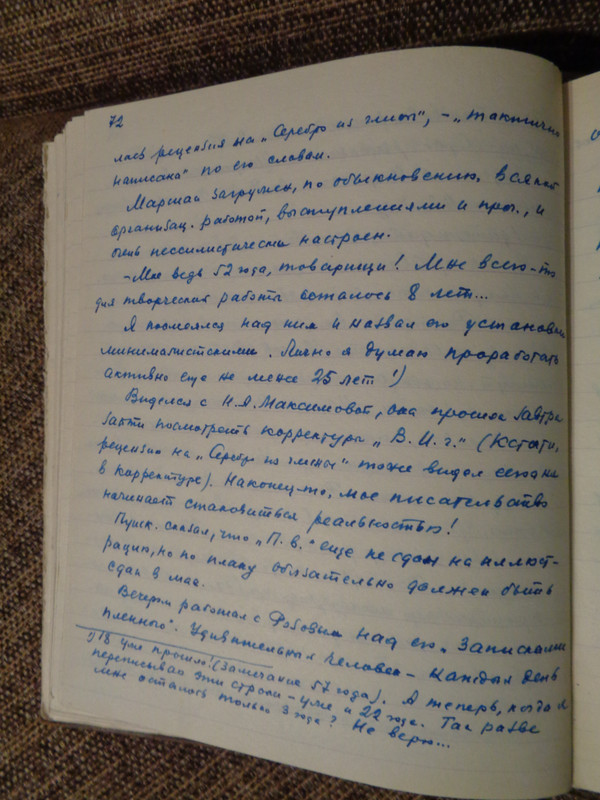 72
лась рецензия на „Серебро из глины", – „тактично
написана" по его словам.
Маршак загружен, по обыкновению, всякой
организац. работой, выступлениями и проч., и
очень пессимистически настроен.
– Мне ведь 52 года, товарищи! Мне всего-то
для творческой работы осталось 8 лет...
Я посмеялся над ним и назвал его установки
минималистскими. Лично я думаю проработать
активно еще не менее 25 лет ¹)
Виделся с Н.Я. Максимовой, она просила завтра
зайти посмотреть корректуры „В. И. г." (Кстати,
рецензию на „Серебро из глины" тоже видел сегодня
в корректуре). Наконец-то, мое писательство
начинает становиться реальностью!
Пуск. сказал, что „П. в." еще не сдан на иллюст-
рацию, но по плану обязательно должен быть
сдан в мае.
Вечером работал с над его „Записками
пленного". Удивительный человек – каждый день
¹) 18 уже прошло! (Замечание 57 года). А теперь, когда я
переписываю эти строки – уже и 22 года. Так разве
мне осталось только 3 года? Не верю...